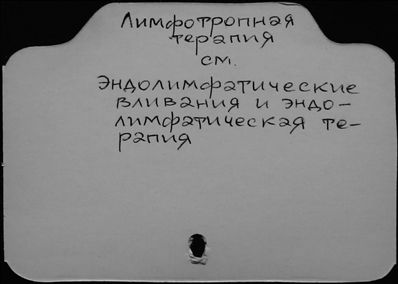 Лимфотропная
терапия
см.
Эндолимфатические
вливания и эндо-
лимфатическая те-
рапия